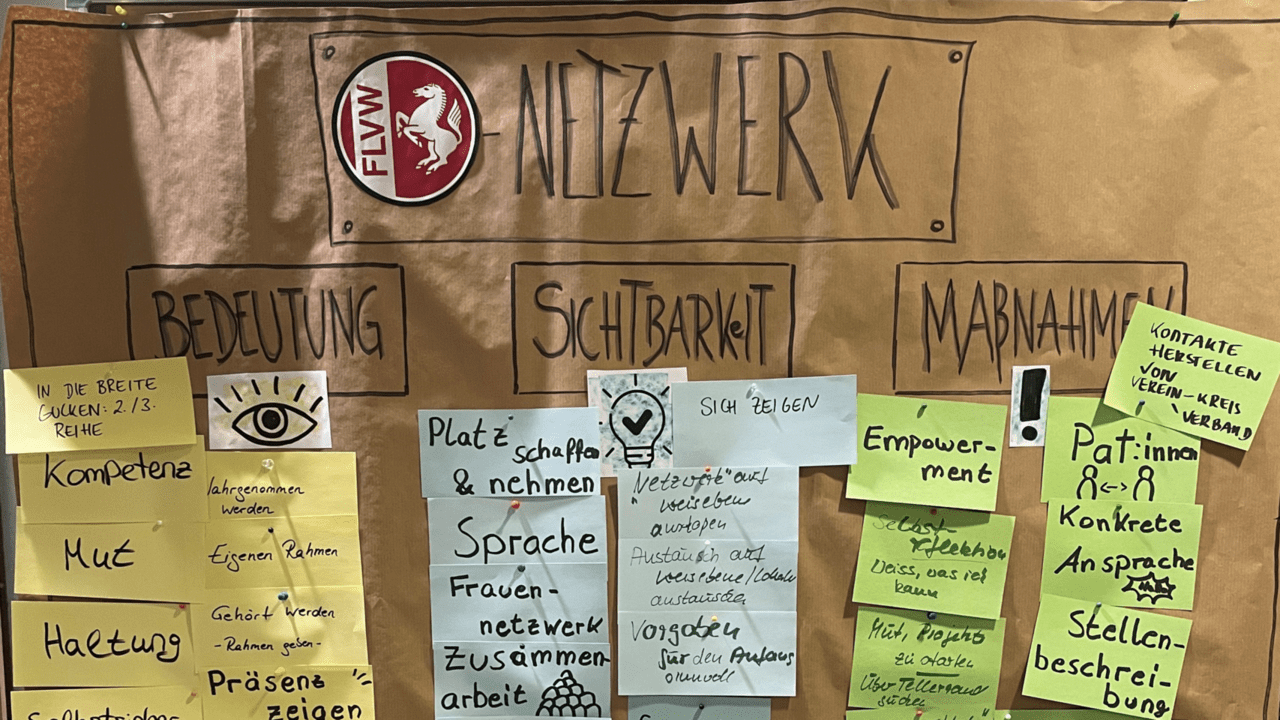 FLVW
-NETZWERK
BEDEUTUNG
IN DIE BREITE
GUCKEN: 2./3.
REIHE
Kompetenz
Mut
Haltung
Wahrgenommen
werden
Eigenen Rahmen
Gehört werden
- Rahmen geben -
Präsenz
zeigen
SICHTBARKEIT
Platz schaffen
& nehmen
Sprache
Frauen-
netzwerk
Zusammen-
arbeit
SICH ZEIGEN
"Netzwerk" auf
Austausch auf
Vorgaben
für den
MAßNAHMEN
Empower-
ment
Selbst-
reflektion
Weiss, was ich
kann
Mut, Projekte
zu starten
Über Tellerrand
KONTAKTE
HERSTELLEN
VON
VEREIN-KREIS
VERBAND
Pat:innen
Konkrete
Ansprache
Stellen-
beschrei-
bung